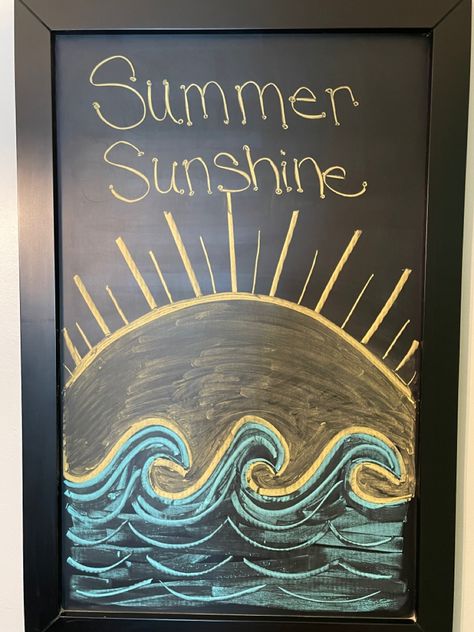 Summer
Sunshine